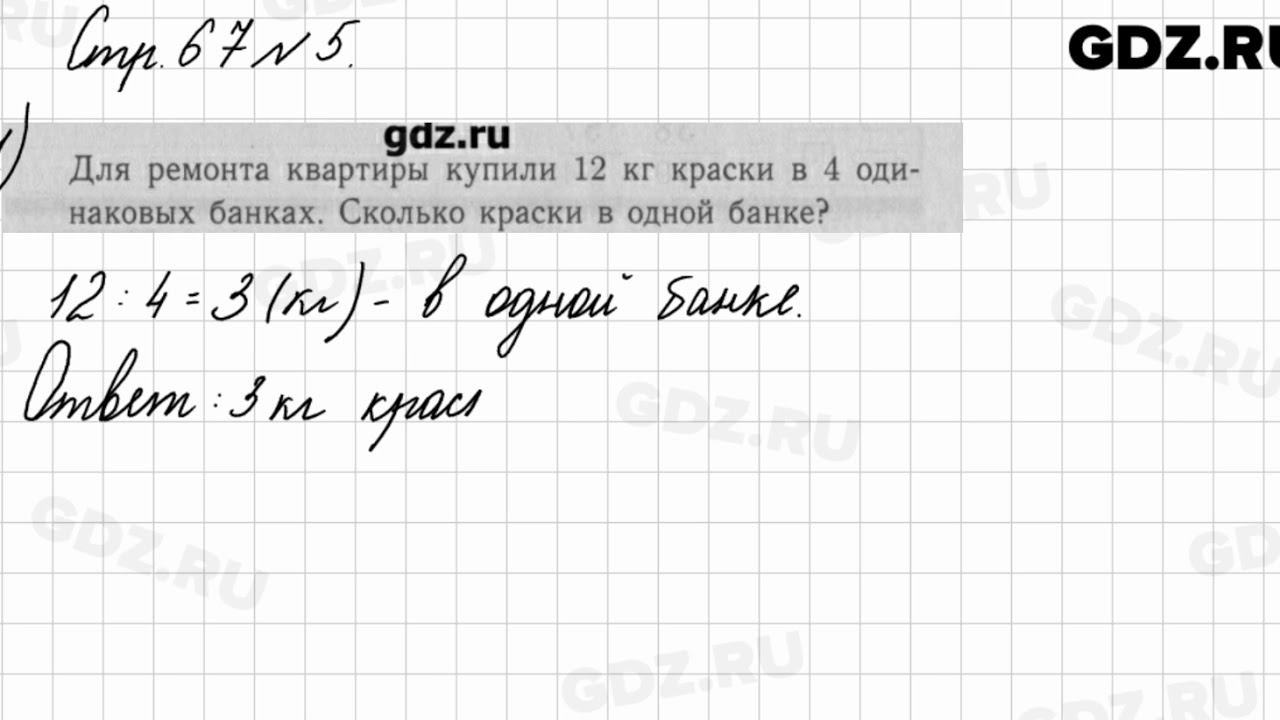 Стр. 67 № 5.
GDZ.RU
gdz.ru
Для ремонта квартиры купили 12 кг краски в 4 оди-
наковых банках. Сколько краски в одной банке?
12 : 4 = 3 (кг) - в одной банке.
Ответ : 3 кг крас
GDZ.RU
GDZ.RU
GDZ.RU
GDZ.RU
GDZ.RU